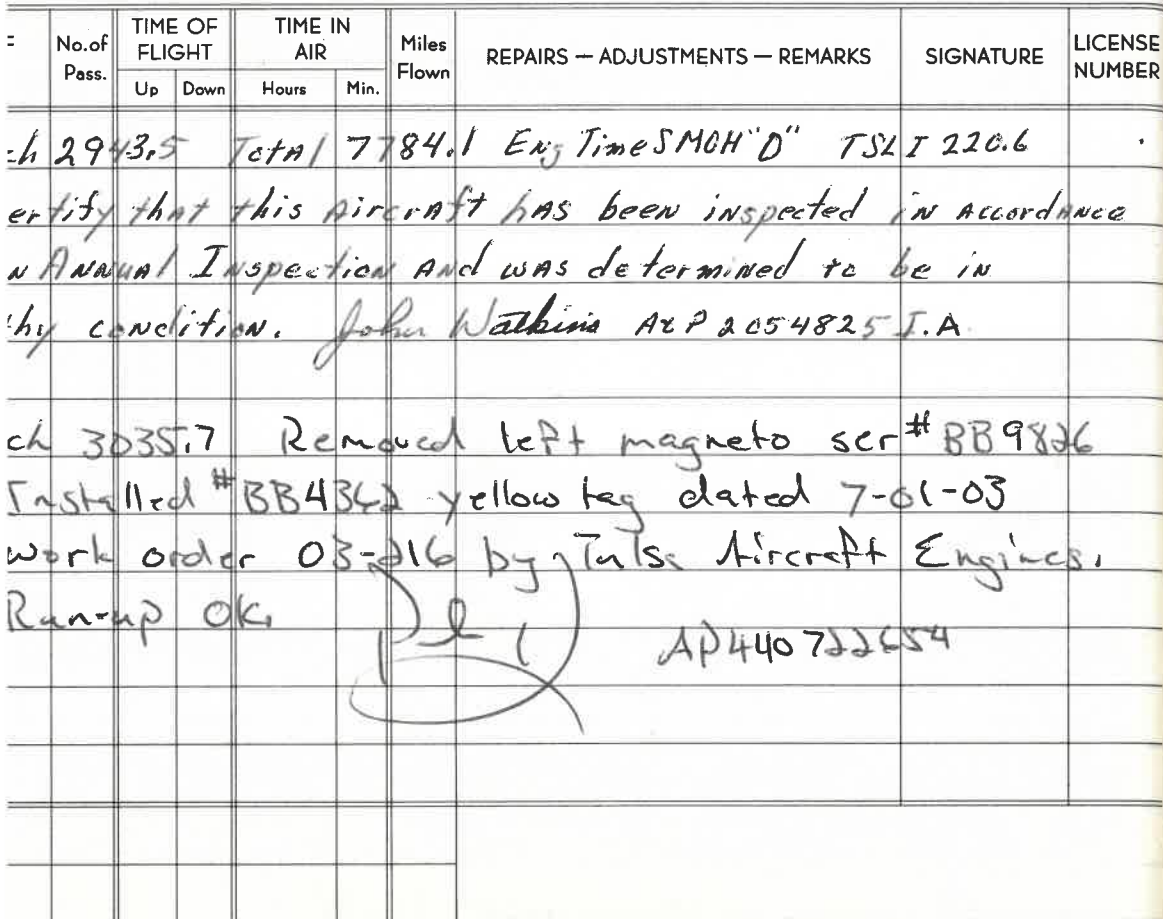 No.of Pass. TIME OF FLIGHT Up Down TIME IN AIR Hours Min. Miles Flown REPAIRS — ADJUSTMENTS — REMARKS SIGNATURE LICENSE NUMBER
ch 2943.5 Total 7784.1 Eng Time SMOH "D" TSLI 220.6
ertify that this Aircraft has been inspected in Accordance
n Annual Inspection And was determined to be in
thy condition. John Watkins A&P 2054825 I.A
ch 3035.7 Removed left magneto ser# BB9826
Installed #BB4362 yellow tag dated 7-01-03
work order 03-216 by Tulsa Aircraft Engines.
Run-up OK.
AP440722654